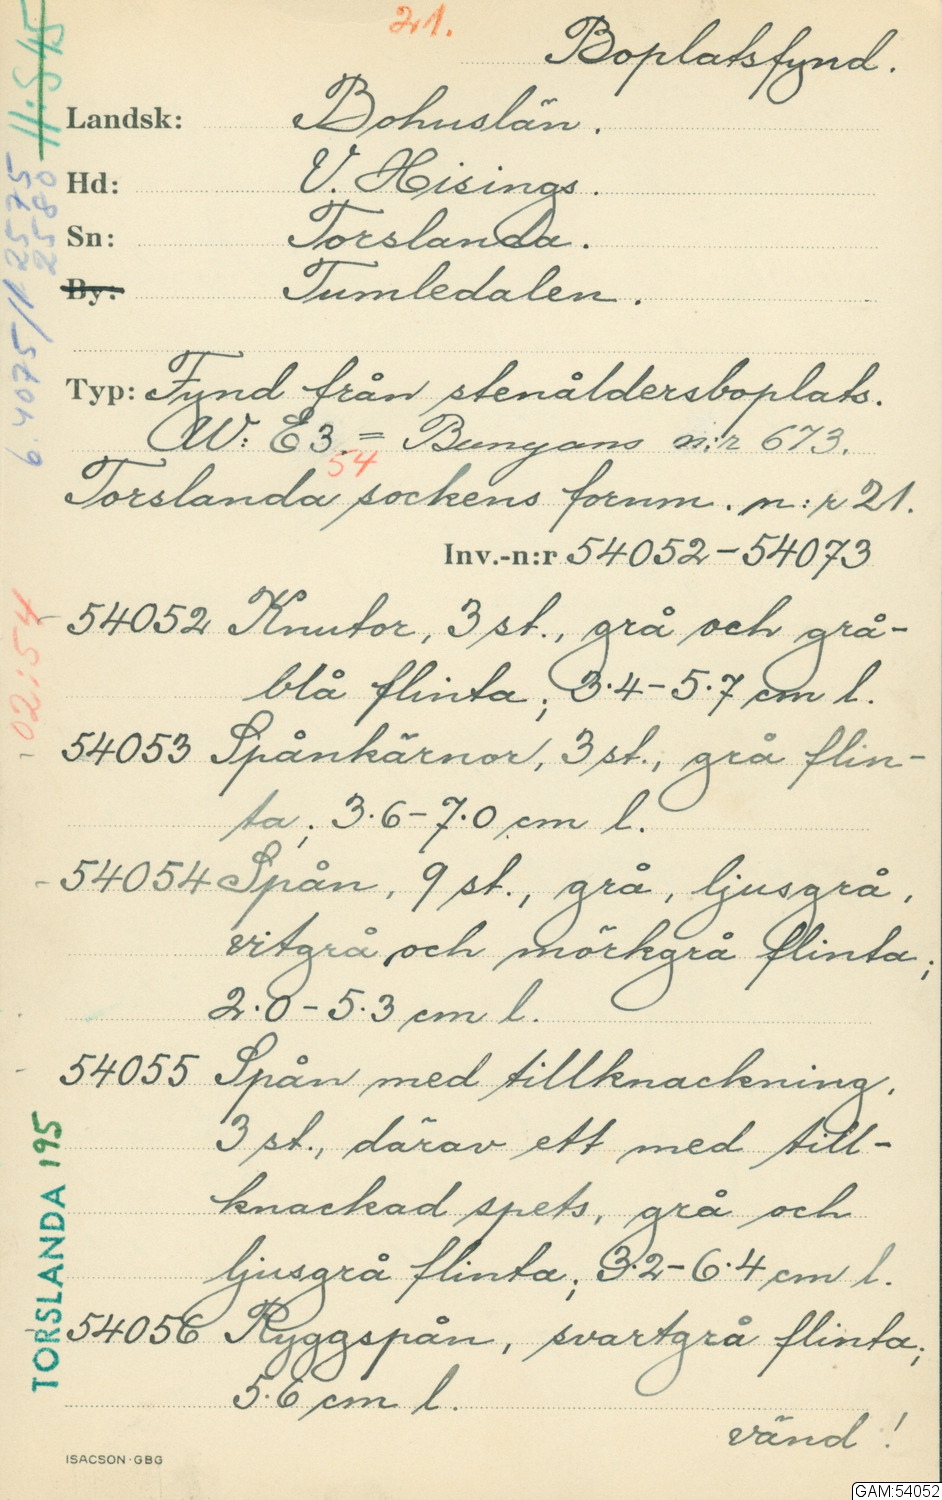 21.
Boplatsfynd.
Landsk: Bohuslän.
Hd: V. Hisings.
Sn: Torslanda.
By: Tumledalen.
Typ: Fynd från stenåldersboplats.
W: E3 = Bunyans n:r 673.
54
Torslanda sockens fornm. n:r 21.
Inv.-n:r 54052-54073
54052 Knutor, 3 st., grå och grå-
blå flinta; 3.4-5.7 cm l.
54053 Spånkärnor, 3 st., grå flin-
ta; 3.6-7.0 cm l.
54054 Spån, 9 st., grå, ljusgrå,
vitgrå och mörkgrå flinta;
2.0-5.3 cm l.
54055 Spån med tillknackning,
3 st., därav ett med till-
knackad spets, grå och
ljusgrå flinta; 3.2-6.4 cm l.
54056 Ryggspån, svartgrå flinta;
5.6 cm l.
vänd!
ISACSON·GBG
11:5 45
2575
2580
02:54
TORSLANDA 195
GAM:54052